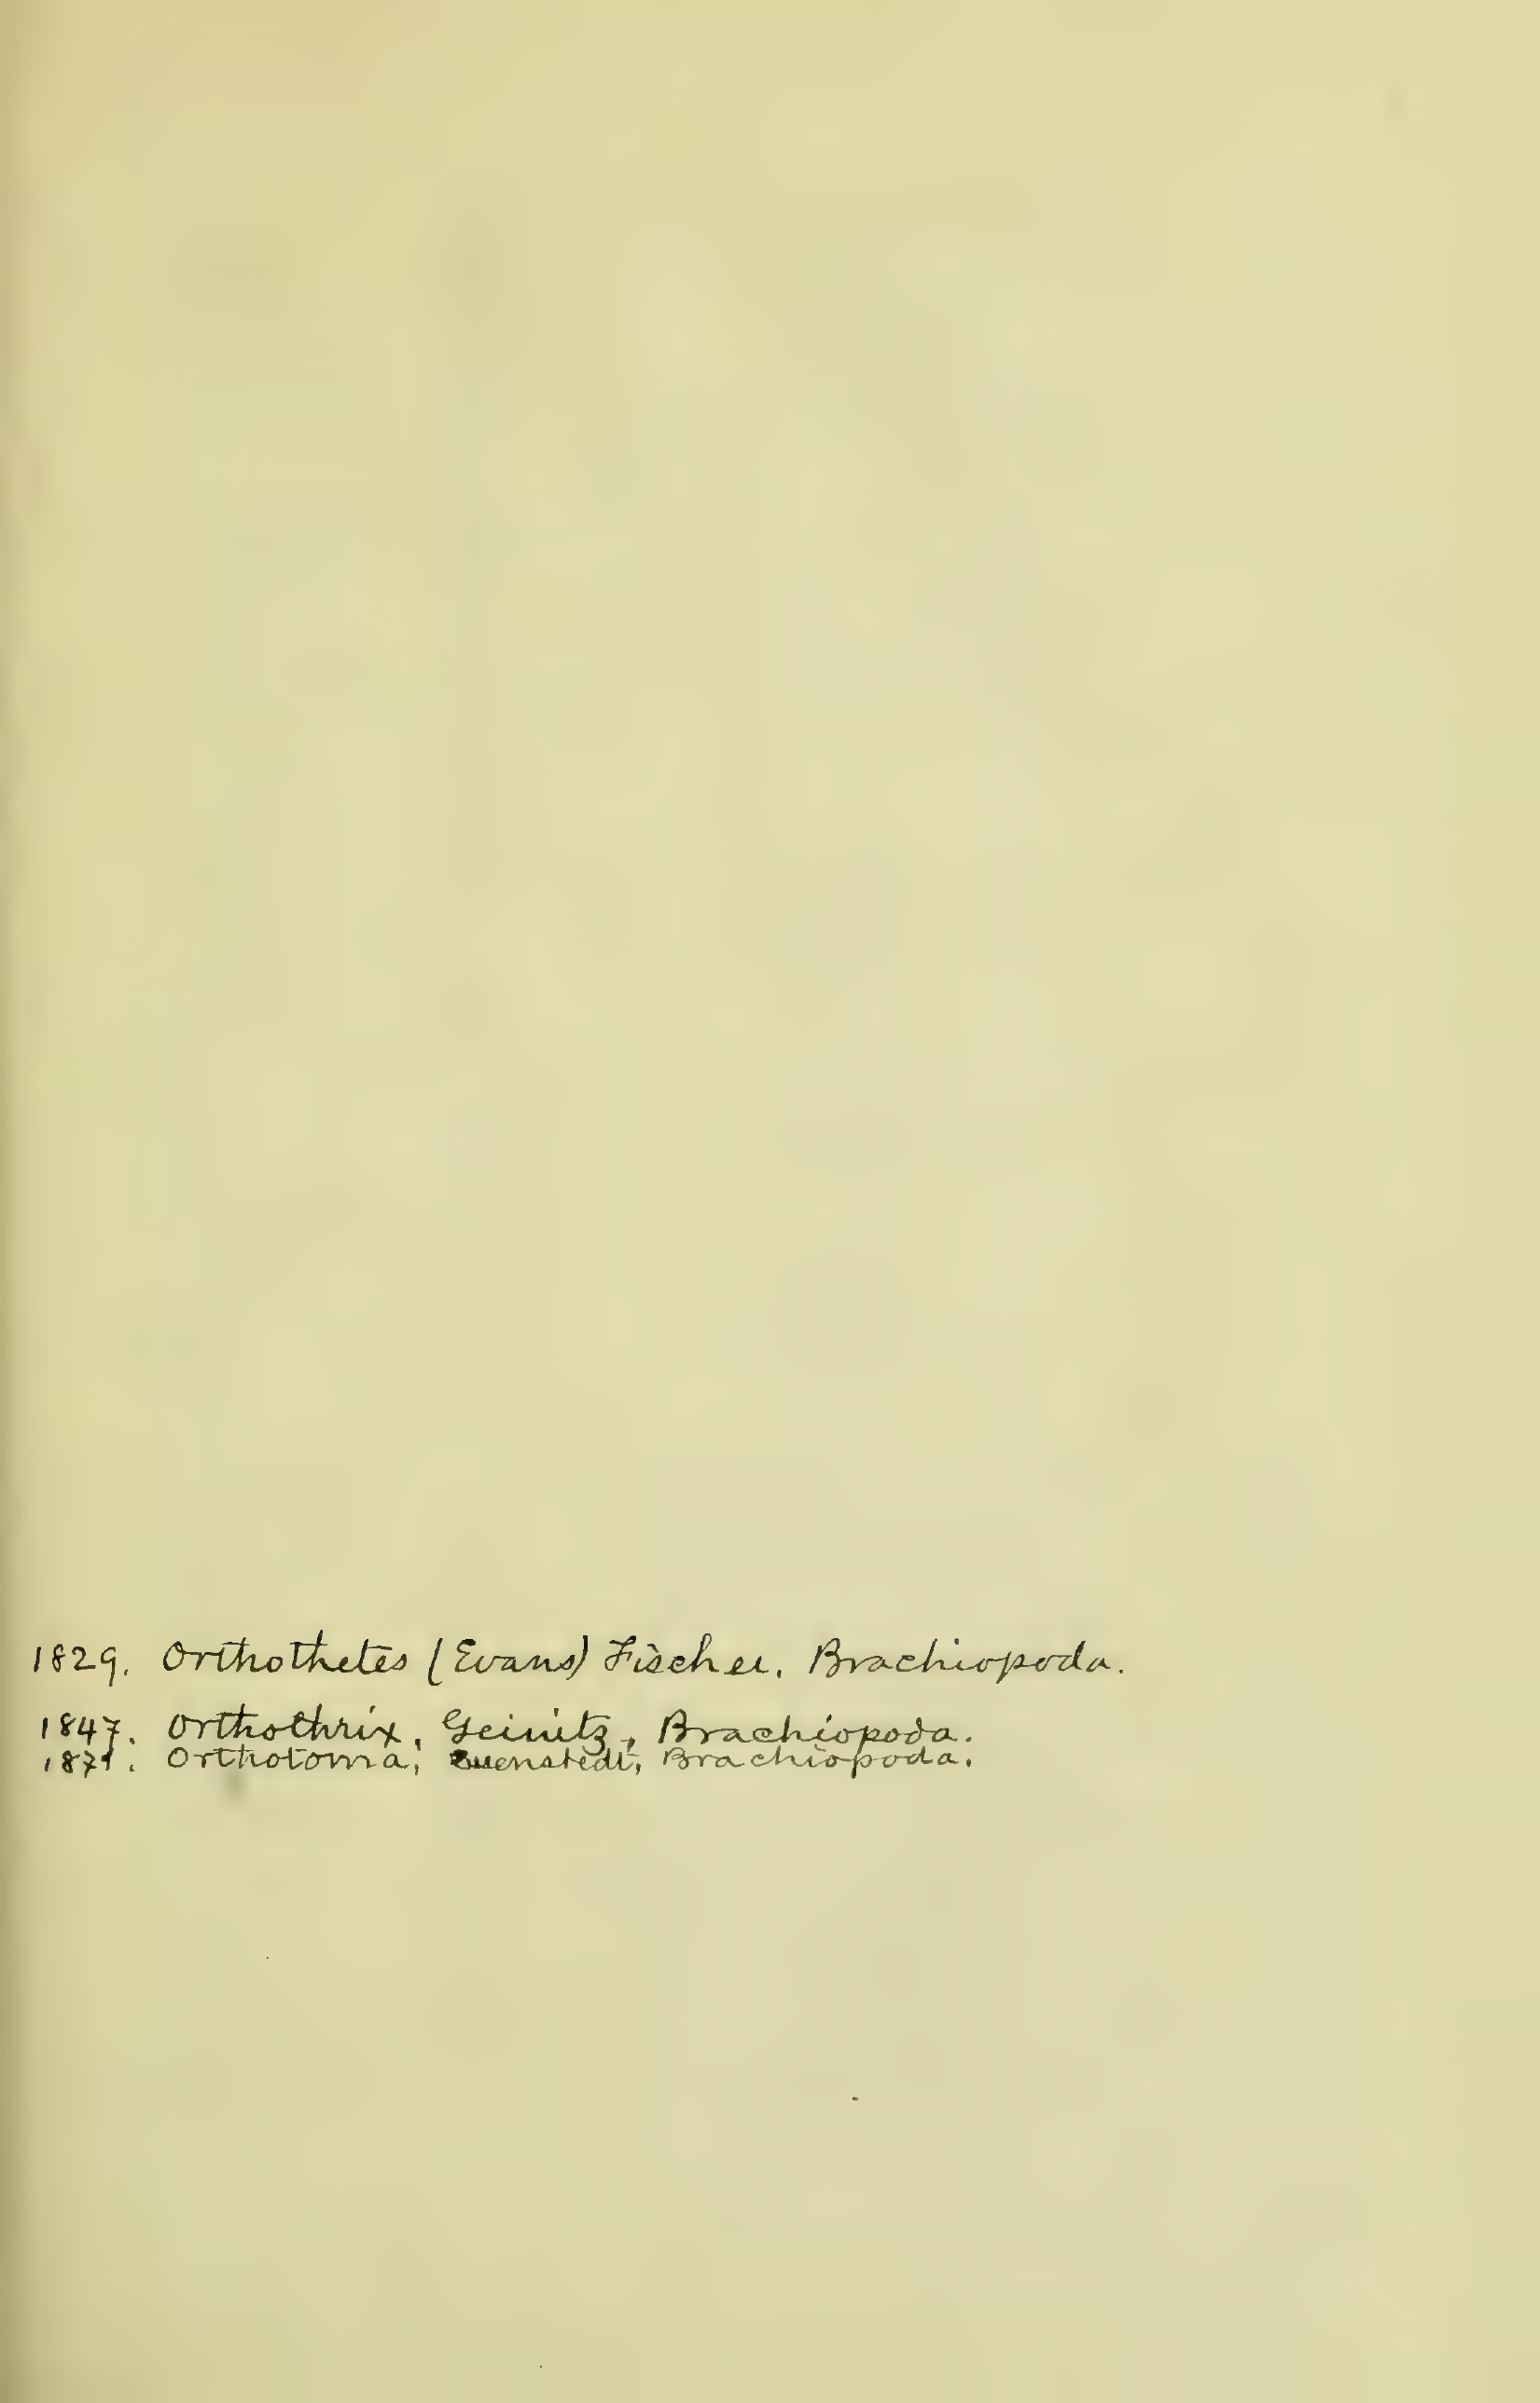 1829. Orthothetes (Evans) Fischer. Brachiopoda.
1847. Orthothrix, Geinitz, Brachiopoda.
1871. Orthotoma, Quenstedt, Brachiopoda.